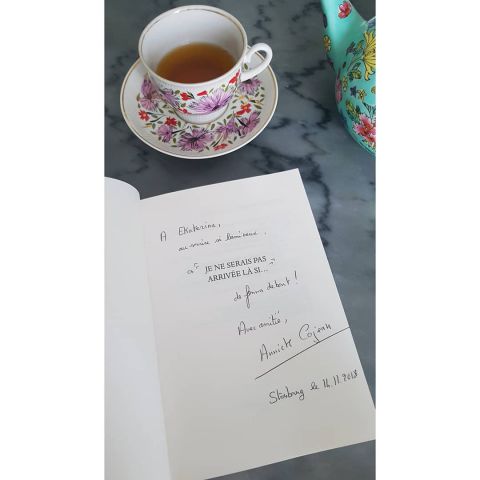 A Ekaterina,
au sourire si lumineux,
ce "JE NE SERAIS PAS
ARRIVÉE LÀ SI..."
de femmes debout !
Avec amitié,
Annick Cojean
Strasbourg le 14.11.2018